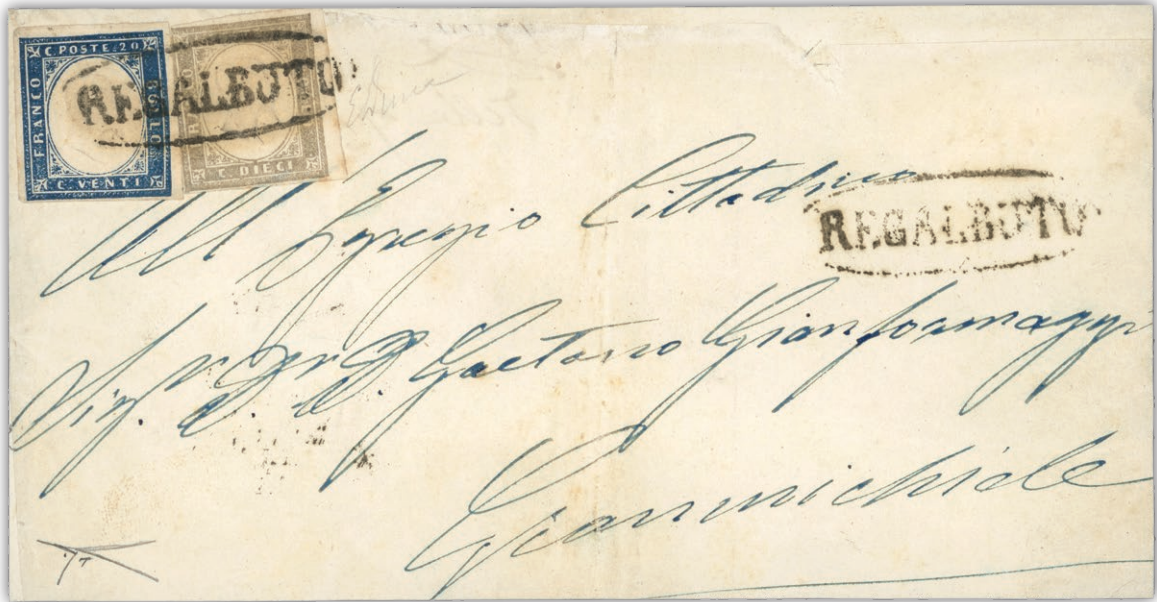 C. POSTE. 20
FRANCO
BOLLO
C. VENTI
FRANCO
C. DIECI
REGALBUTO
REGALBUTO
All Egregio Cittadino
Sig. Gaetano Gianformaggi
Granmichiele